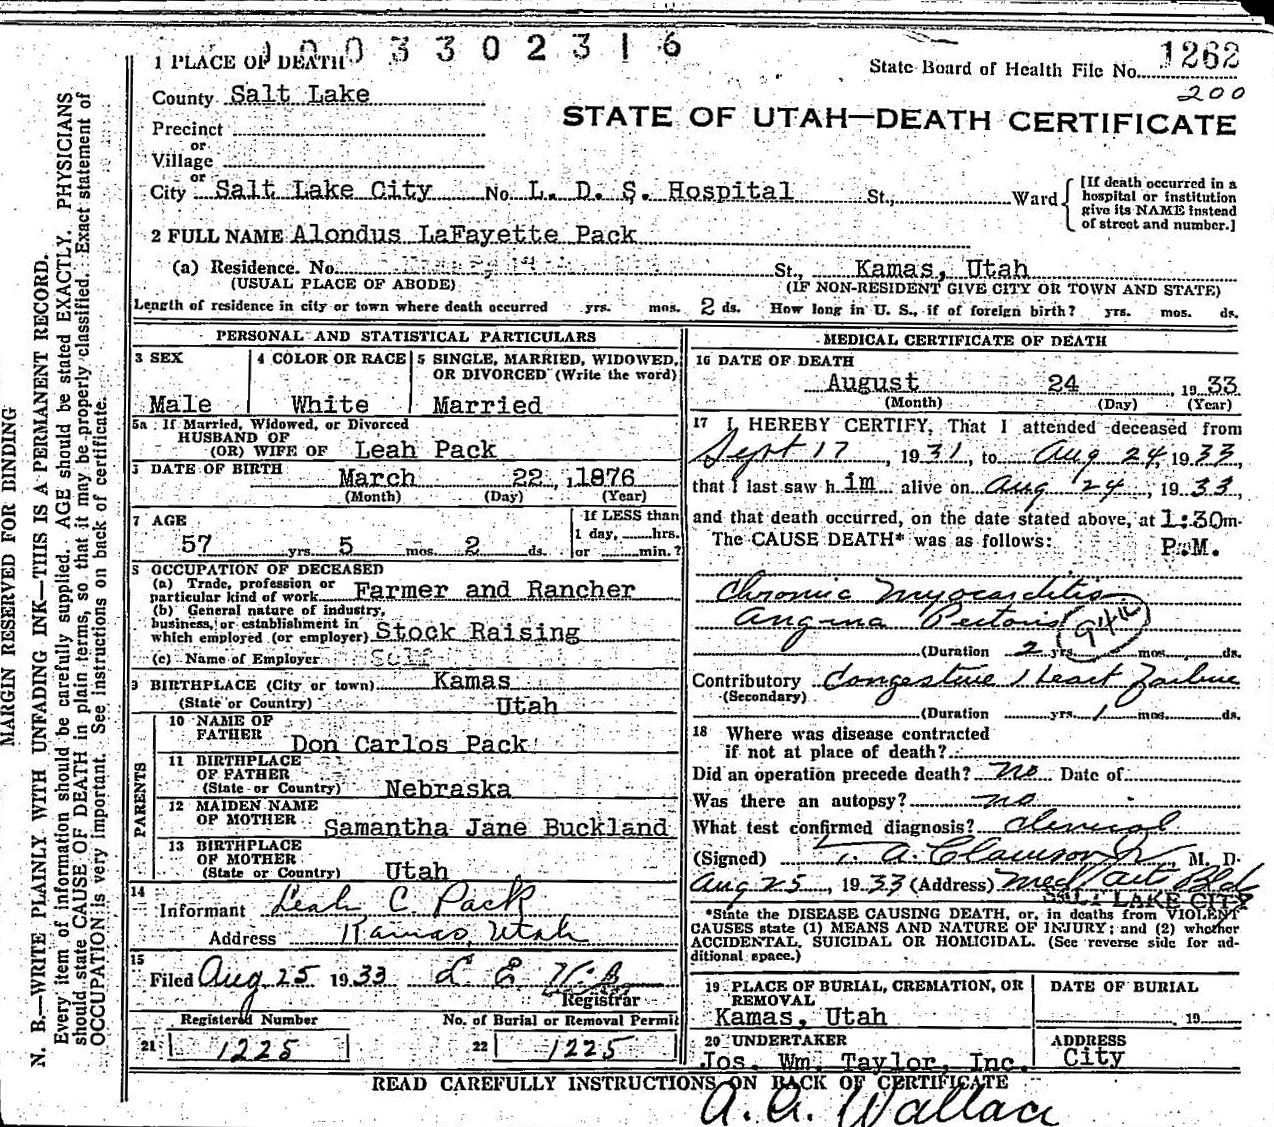 0003302316
1 PLACE OF DEATH
State Board of Health File No. 1262
200
County Salt Lake
STATE OF UTAH—DEATH CERTIFICATE
Precinct
or
Village
or
City Salt Lake City No. L. D. S. Hospital St., Ward
[If death occurred in a hospital or institution give its NAME instead of street and number.]
2 FULL NAME Alondus LaFayette Pack
(a) Residence. No. St., Kamas, Utah
(USUAL PLACE OF ABODE) (IF NON-RESIDENT GIVE CITY OR TOWN AND STATE)
Length of residence in city or town where death occurred yrs. mos. 2 ds. How long in U. S., if of foreign birth? yrs. mos. ds.
PERSONAL AND STATISTICAL PARTICULARS
3 SEX
Male
4 COLOR OR RACE
White
5 SINGLE, MARRIED, WIDOWED,
OR DIVORCED (Write the word)
Married
5a If Married, Widowed, or Divorced
HUSBAND OF
(OR) WIFE OF Leah Pack
DATE OF BIRTH March 22, 1876
(Month) (Day) (Year)
7 AGE
57 yrs. 5 mos. 2 ds.
If LESS than
1 day, hrs.
or min.?
8 OCCUPATION OF DECEASED
(a) Trade, profession or
particular kind of work Farmer and Rancher
(b) General nature of industry,
business, or establishment in
which employed (or employer) Stock Raising
(c) Name of Employer Self
9 BIRTHPLACE (City or town) Kamas
(State or Country) Utah
PARENTS
10 NAME OF
FATHER Don Carlos Pack
11 BIRTHPLACE
OF FATHER
(State or Country) Nebraska
12 MAIDEN NAME
OF MOTHER Samantha Jane Buckland
13 BIRTHPLACE
OF MOTHER
(State or Country) Utah
14
Informant Leah C. Pack
Address Kamas, Utah
15
Filed Aug 25 1933
Registrar
Registered Number No. of Burial or Removal Permit
21 1225 22 1225
MEDICAL CERTIFICATE OF DEATH
16 DATE OF DEATH
August 24, 1933
(Month) (Day) (Year)
17 I HEREBY CERTIFY, That I attended deceased from
Sept 17, 1931, to Aug 24, 1933,
that I last saw him alive on Aug 24, 1933,
and that death occurred, on the date stated above, at 1:30m.
The CAUSE DEATH* was as follows: P.M.
Chronic Myocarditis
Angina Pectoris
(Duration 2 yrs. mos. ds.
Contributory Congestive Heart Failure
(Secondary)
(Duration yrs. 1 mos. ds.
18 Where was disease contracted
if not at place of death?
Did an operation precede death? no Date of
Was there an autopsy? no
What test confirmed diagnosis? clinical
(Signed) T. A. Clawson Jr, M. D.
Aug 25, 1933 (Address) Med Arts Bld
SALT LAKE CITY
*State the DISEASE CAUSING DEATH, or, in deaths from VIOLENT
CAUSES state (1) MEANS AND NATURE OF INJURY; and (2) whether
ACCIDENTAL, SUICIDAL OR HOMICIDAL. (See reverse side for ad-
ditional space.)
19 PLACE OF BURIAL, CREMATION, OR
REMOVAL
Kamas, Utah
DATE OF BURIAL
19
20 UNDERTAKER
Jos. Wm. Taylor, Inc.
ADDRESS
City
READ CAREFULLY INSTRUCTIONS ON BACK OF CERTIFICATE
A. A. Wallace
MARGIN RESERVED FOR BINDING
N. B.—WRITE PLAINLY WITH UNFADING INK—THIS IS A PERMANENT RECORD.
Every item of information should be carefully supplied. AGE should be stated EXACTLY. PHYSICIANS
should state CAUSE OF DEATH in plain terms, so that it may be properly classified. Exact statement of
OCCUPATION is very important. See instructions on back of certificate.